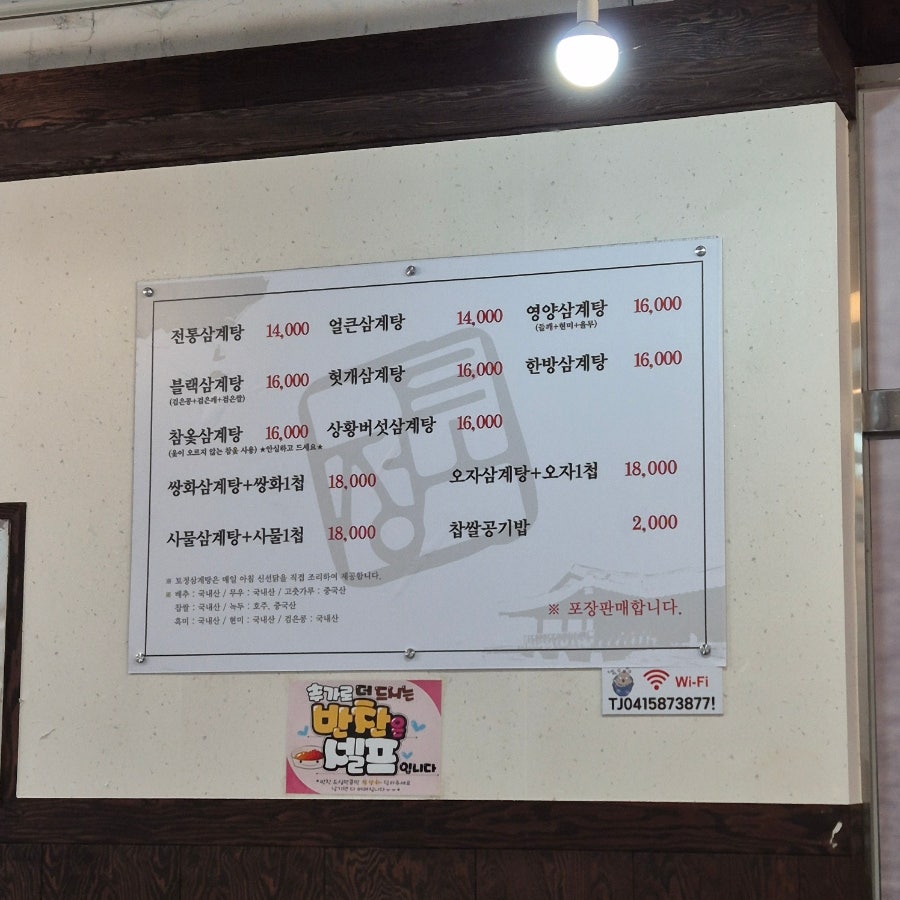 전통삼계탕 14,000 얼큰삼계탕 14,000 영양삼계탕 16,000
(들깨+현미+율무)
블랙삼계탕 16,000 헛개삼계탕 16,000 한방삼계탕 16,000
(검은콩+검은깨+검은쌀)
참옻삼계탕 16,000 상황버섯삼계탕 16,000
(옻이 오르지 않는 참옻 사용) ★안심하고 드세요★
쌍화삼계탕+쌍화1첩 18,000 오자삼계탕+오자1첩 18,000
사물삼계탕+사물1첩 18,000 찹쌀공기밥 2,000
※ 토정삼계탕은 매일 아침 신선닭을 직접 조리하여 제공합니다.
※ 배추 : 국내산 / 무우 : 국내산 / 고춧가루 : 중국산
찹쌀 : 국내산 / 녹두 : 호주, 중국산
흑미 : 국내산 / 현미 : 국내산 / 검은콩 : 국내산
※ 포장판매합니다.
Wi-Fi
TJ0415873877!
추가로 더 드시는
반찬은
셀프입니다